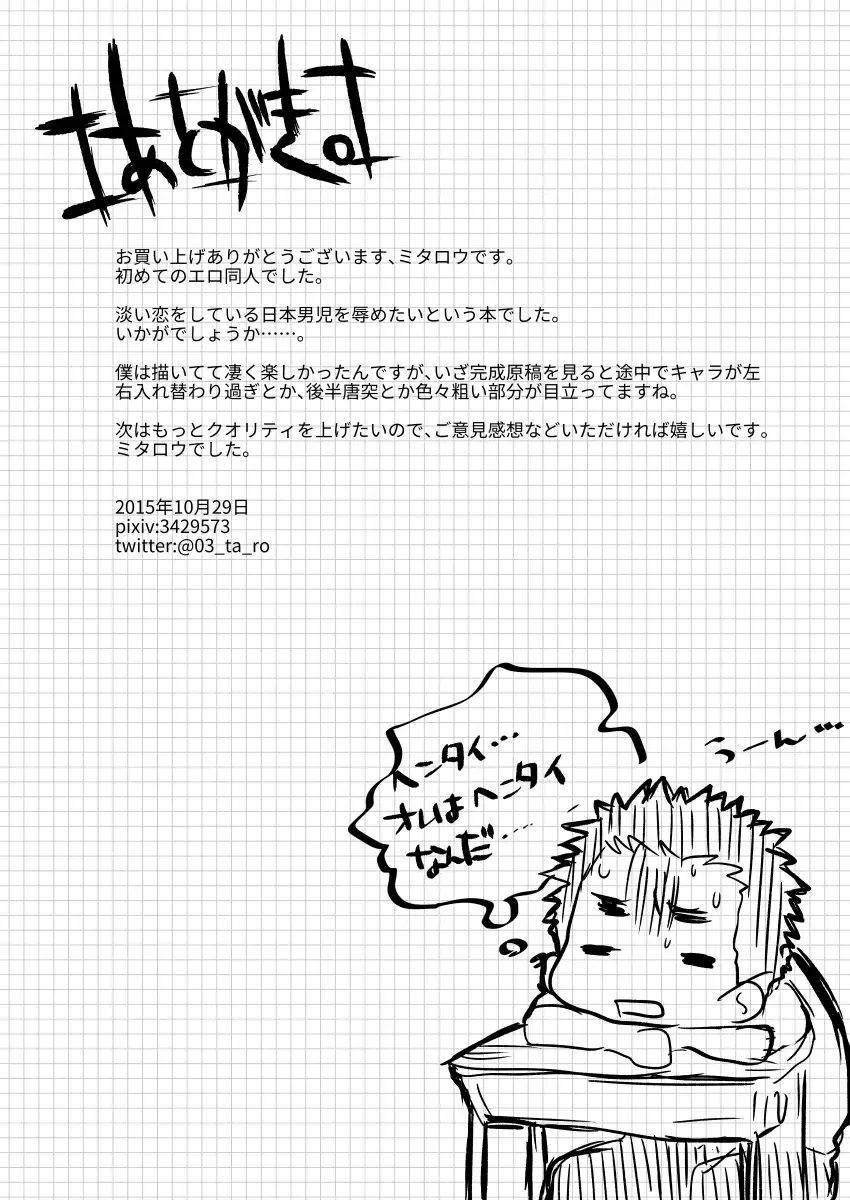 あとがき。
お買い上げありがとうございます、ミタロウです。
初めてのエロ同人でした。
淡い恋をしている日本男児を辱めたいという本でした。
いかがでしょうか……。
僕は描いてて凄く楽しかったんですが、いざ完成原稿を見ると途中でキャラが左
右入れ替わり過ぎとか、後半唐突とか色々粗い部分が目立ってますね。
次はもっとクオリティを上げたいので、ご意見感想などいただければ嬉しいです。
ミタロウでした。
2015年10月29日
pixiv:3429573
twitter:@03_ta_ro
うーん…
ヘンタイ…
オレはヘンタイ
なんだ…